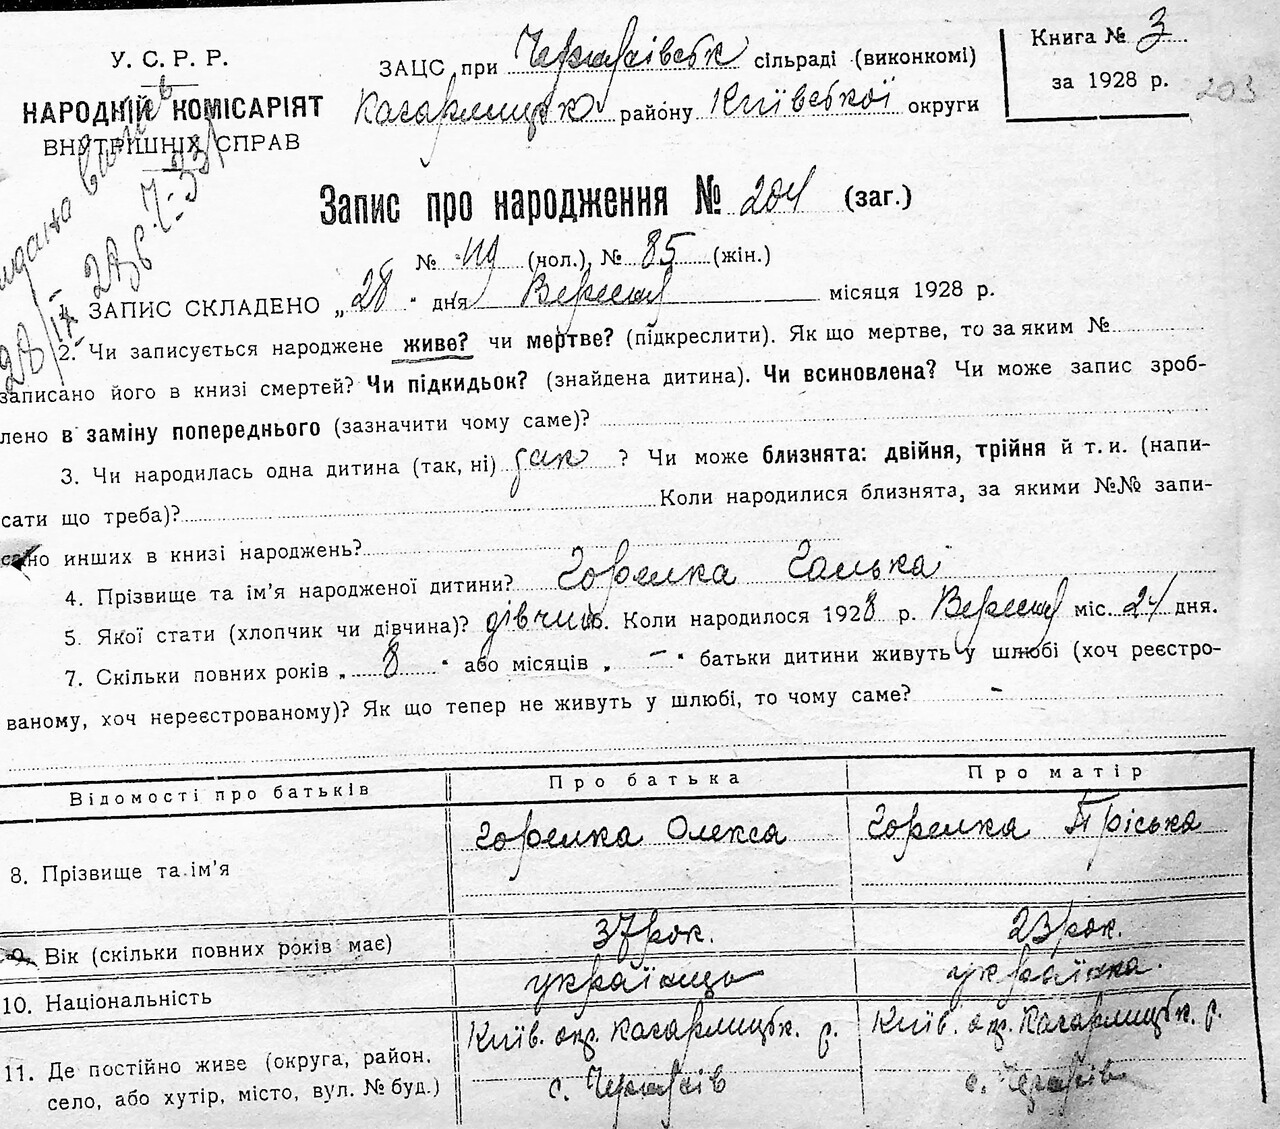 У.С.Р.Р.
НАРОДНІЙ КОМІСАРІЯТ
ВНУТРІШНІХ СПРАВ
ЗАЦС при сільраді (виконкомі)
Кагарлицьк району Київської округи
Книга № 3
за 1928 р.
203
Запис про народження № 204 (заг.)
№ 119 (чол.), № 85 (жін.)
1. ЗАПИС СКЛАДЕНО „28" дня Вересня місяця 1928 р.
2. Чи записується народжене живе? чи мертве? (підкреслити). Як що мертве, то за яким №
записано його в книзі смертей? Чи підкидьок? (знайдена дитина). Чи всиновлена? Чи може запис зроб-
лено в заміну попереднього (зазначити чому саме)?
3. Чи народилась одна дитина (так, ні) так ? Чи може близнята: двійня, трійня й т. и. (напи-
сати що треба)? Коли народилися близнята, за якими №№ запи-
сано инших в книзі народжень?
4. Прізвище та ім'я народженої дитини? Горелка Галька
5. Якої стати (хлопчик чи дівчина)? дівчин. Коли народилося 1928 р. Вересня міс. 24 дня.
7. Скільки повних років „ 8 " або місяців „ – " батьки дитини живуть у шлюбі (хоч реєстро-
ваному, хоч нереєстрованому)? Як що тепер не живуть у шлюбі, то чому саме? –
Відомості про батьків Про батька Про матір
8. Прізвище та ім'я Горелка Олекса Горелка Пріська
9. Вік (скільки повних років має) 37 рок. 23 рок.
10. Національність українць українка.
11. Де постійно живе (округа, район, Київ. окр. Кагарлицьк. р. Київ. окр. Кагарлицьк. р.
село, або хутір, місто, вул. № буд.) с. с.